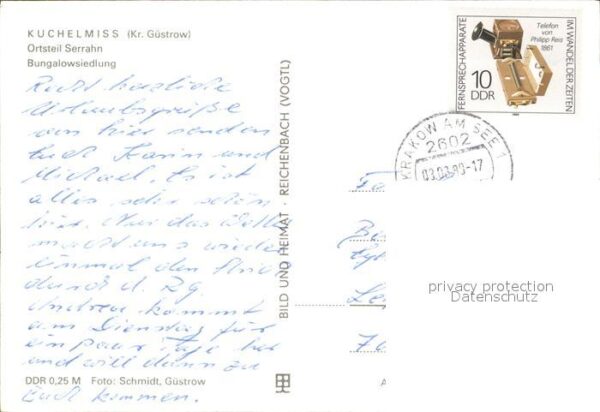 KUCHELMISS (Kr. Güstrow)
Ortsteil Serrahn
Bungalowsiedlung
Recht herzliche
Urlaubsgrüße
von hier senden
Euch Karin und
Michael. Es ist
alles sehr schön
hier. Nur das Wetter
macht uns wieder
einmal den Strich
durch d. Rg.
Andrea kommt
am Dienstag für
ein paar Tage her
und will dann zu
Euch kommen.
DDR 0,25 M Foto: Schmidt, Güstrow
BILD UND HEIMAT · REICHENBACH (VOGTL)
FERNSPRECHAPPARATE
IM WANDEL DER ZEITEN
Telefon
von
Philipp Reis
1861
10
DDR
KRAKOW AM SEE 1
2602
-17
privacy protection
Datenschutz